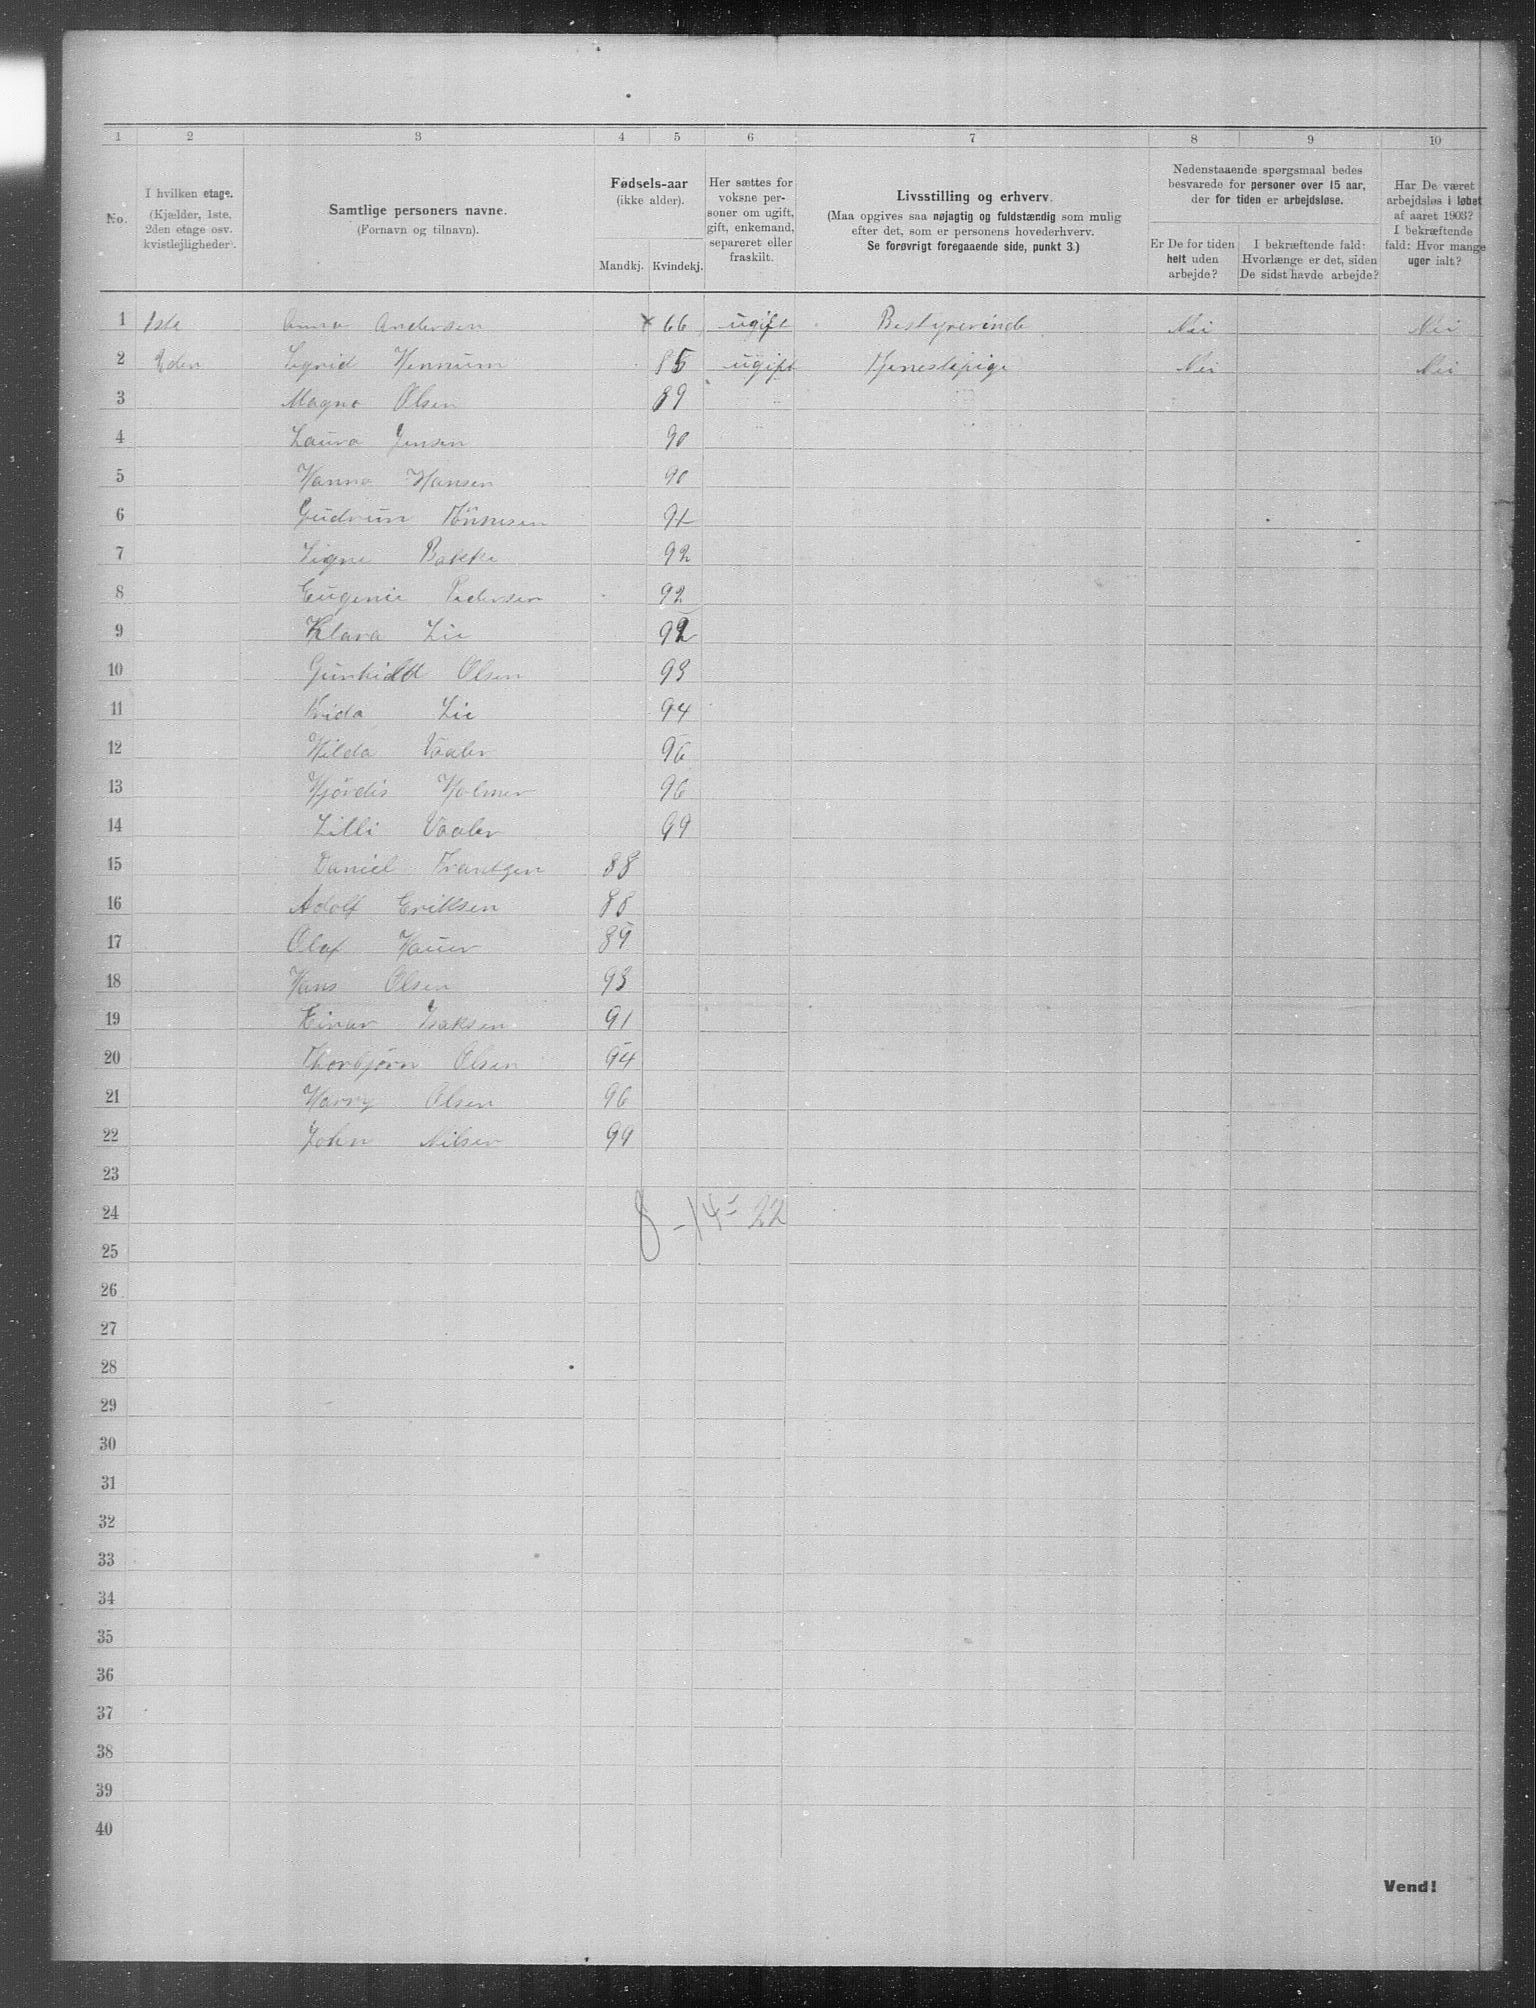 1 2 3 4 5 6 7 8 9 10
No.
I hvilken etage.
(Kjælder, 1ste,
2den etage osv.
kvistlejligheder).
Samtlige personers navne.
(Fornavn og tilnavn).
Fødsels-aar
(ikke alder).
Mandkj. Kvindekj.
Her sættes for
voksne per-
soner om ugift,
gift, enkemand,
separeret eller
fraskilt.
Livsstilling og erhverv.
(Maa opgives saa nøjagtig og fuldstændig som mulig
efter det, som er personens hovederhverv.
Se forøvrigt foregaaende side, punkt 3.)
Nedenstaaende spørgsmaal bedes
besvarede for personer over 15 aar,
der for tiden er arbejdsløse.
Er De for tiden
helt uden
arbejde?
I bekræftende fald:
Hvorlænge er det, siden
De sidst havde arbejde?
Har De været
arbejdsløs i løbet
af aaret 1903?
I bekræftende
fald: Hvor mange
uger ialt?
1 1ste Anna Andersen x 66 ugift Bestyrerinde Nei Nei
2 2den Sigrid Hennum 85 ugift Tjenestepige Nei Nei
3 Magna Olsen 89
4 Laura Jensen 90
5 Hanna Hansen 90
6 Gudrun Tönnesen 91
7 Signe Bakke 92
8 Eugenie Pedersen 92
9 Klara Lie 92
10 Gunhild Olsen 93
11 Frida Lie 94
12 Hilda Vaaler 96
13 Hjördis Holmer 96
14 Lilli Vaaler 99
15 Daniel 88
16 Adolf Eriksen 88
17 Olaf Hauer 89
18 Hans Olsen 93
19 Einar Isaksen 91
20 Thorbjörn Olsen 94
21 Harry Olsen 96
22 John Nilsen 99
23
24 8 - 14 = 22
25
26
27
28
29
30
31
32
33
34
35
36
37
38
39
40
Vend!